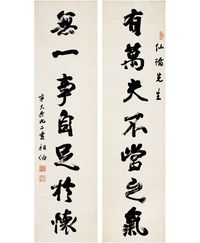 仙橋先生
有萬夫不當之氣
無一事自足於懷
辛未年九二叟相伯